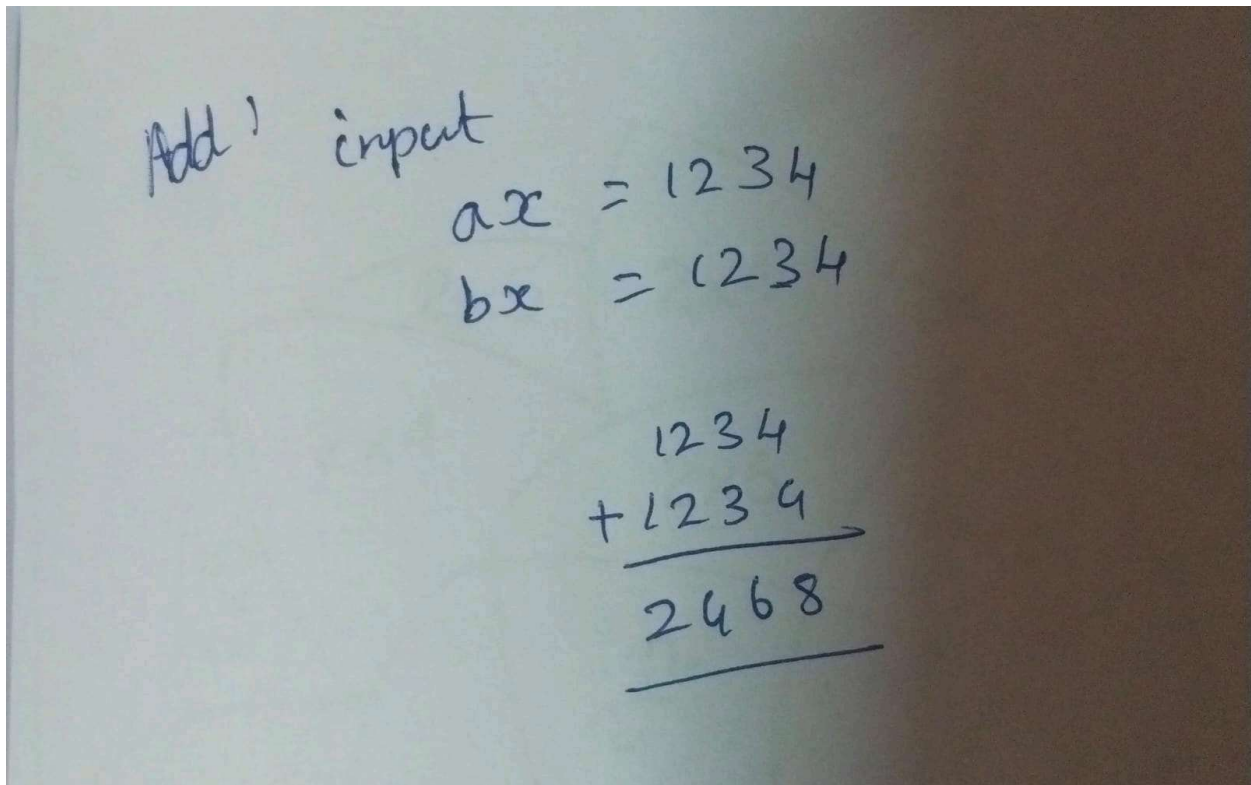 Add' input
ax = 1234
bx = 1234
1234
+ 1234
2468